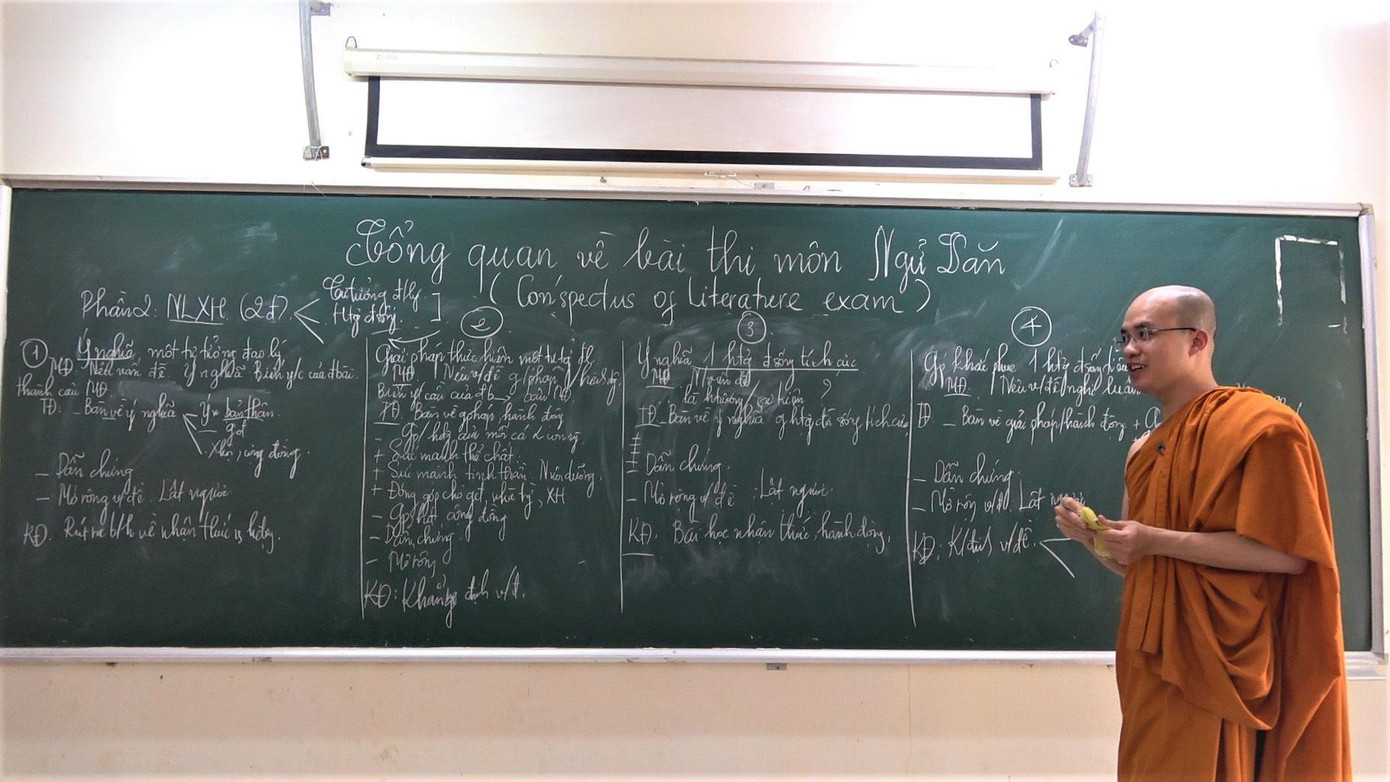 Tổng quan về bài thi môn Ngữ Văn
(Conspectus of Literature exam)
Phần 2: NLXH (2đ)
Tư tưởng đ/lý
Htg đ/sống
1
Ý nghĩa, một tư tưởng đạo lý
MĐ Nêu vấn đề ý nghĩa Biến y/c của đ/bài
thành câu MĐ
TĐ: - Bàn về ý nghĩa
Ý n bản thân
gđ
XH, cộng đồng
- Dẫn chứng
- Mở rộng v/đề Lật ngược
KĐ. Rút ra b/h về nhận thức
2
Giải pháp thực hiện một
MĐ: Nêu v/đề g/pháp
Biến y/cầu của đb
TĐ: Bàn về g/pháp, hành động
- Gp/ của mỗi cá
+ Sức mạnh thể chất
+ Sức mạnh tinh thần - Nuôi dưỡng
+ Đóng góp cho gđ, nhà trg, XH
- Gp cộng đồng
- Dẫn chứng
- Mở rộng
KĐ: Khẳng định v/đ.
3
Ý nghĩa 1 htg đ sống tích cực
MĐ N/v/đề
là ?
TĐ - Bàn về ý nghĩa htg đ sống tích cực
+
+
+
- Dẫn chứng.
- Mở rộng v/đề : Lật ngược
KĐ. Bài học nhận thức, hành động.
4
Gp khắc phục 1 htg đ sống
MĐ. Nêu v/đề nghị luận
TĐ - Bàn về giải pháp/hành động +
- Dẫn chứng
- Mở rộng v/đ. Lật
KĐ: K/định v/đề.